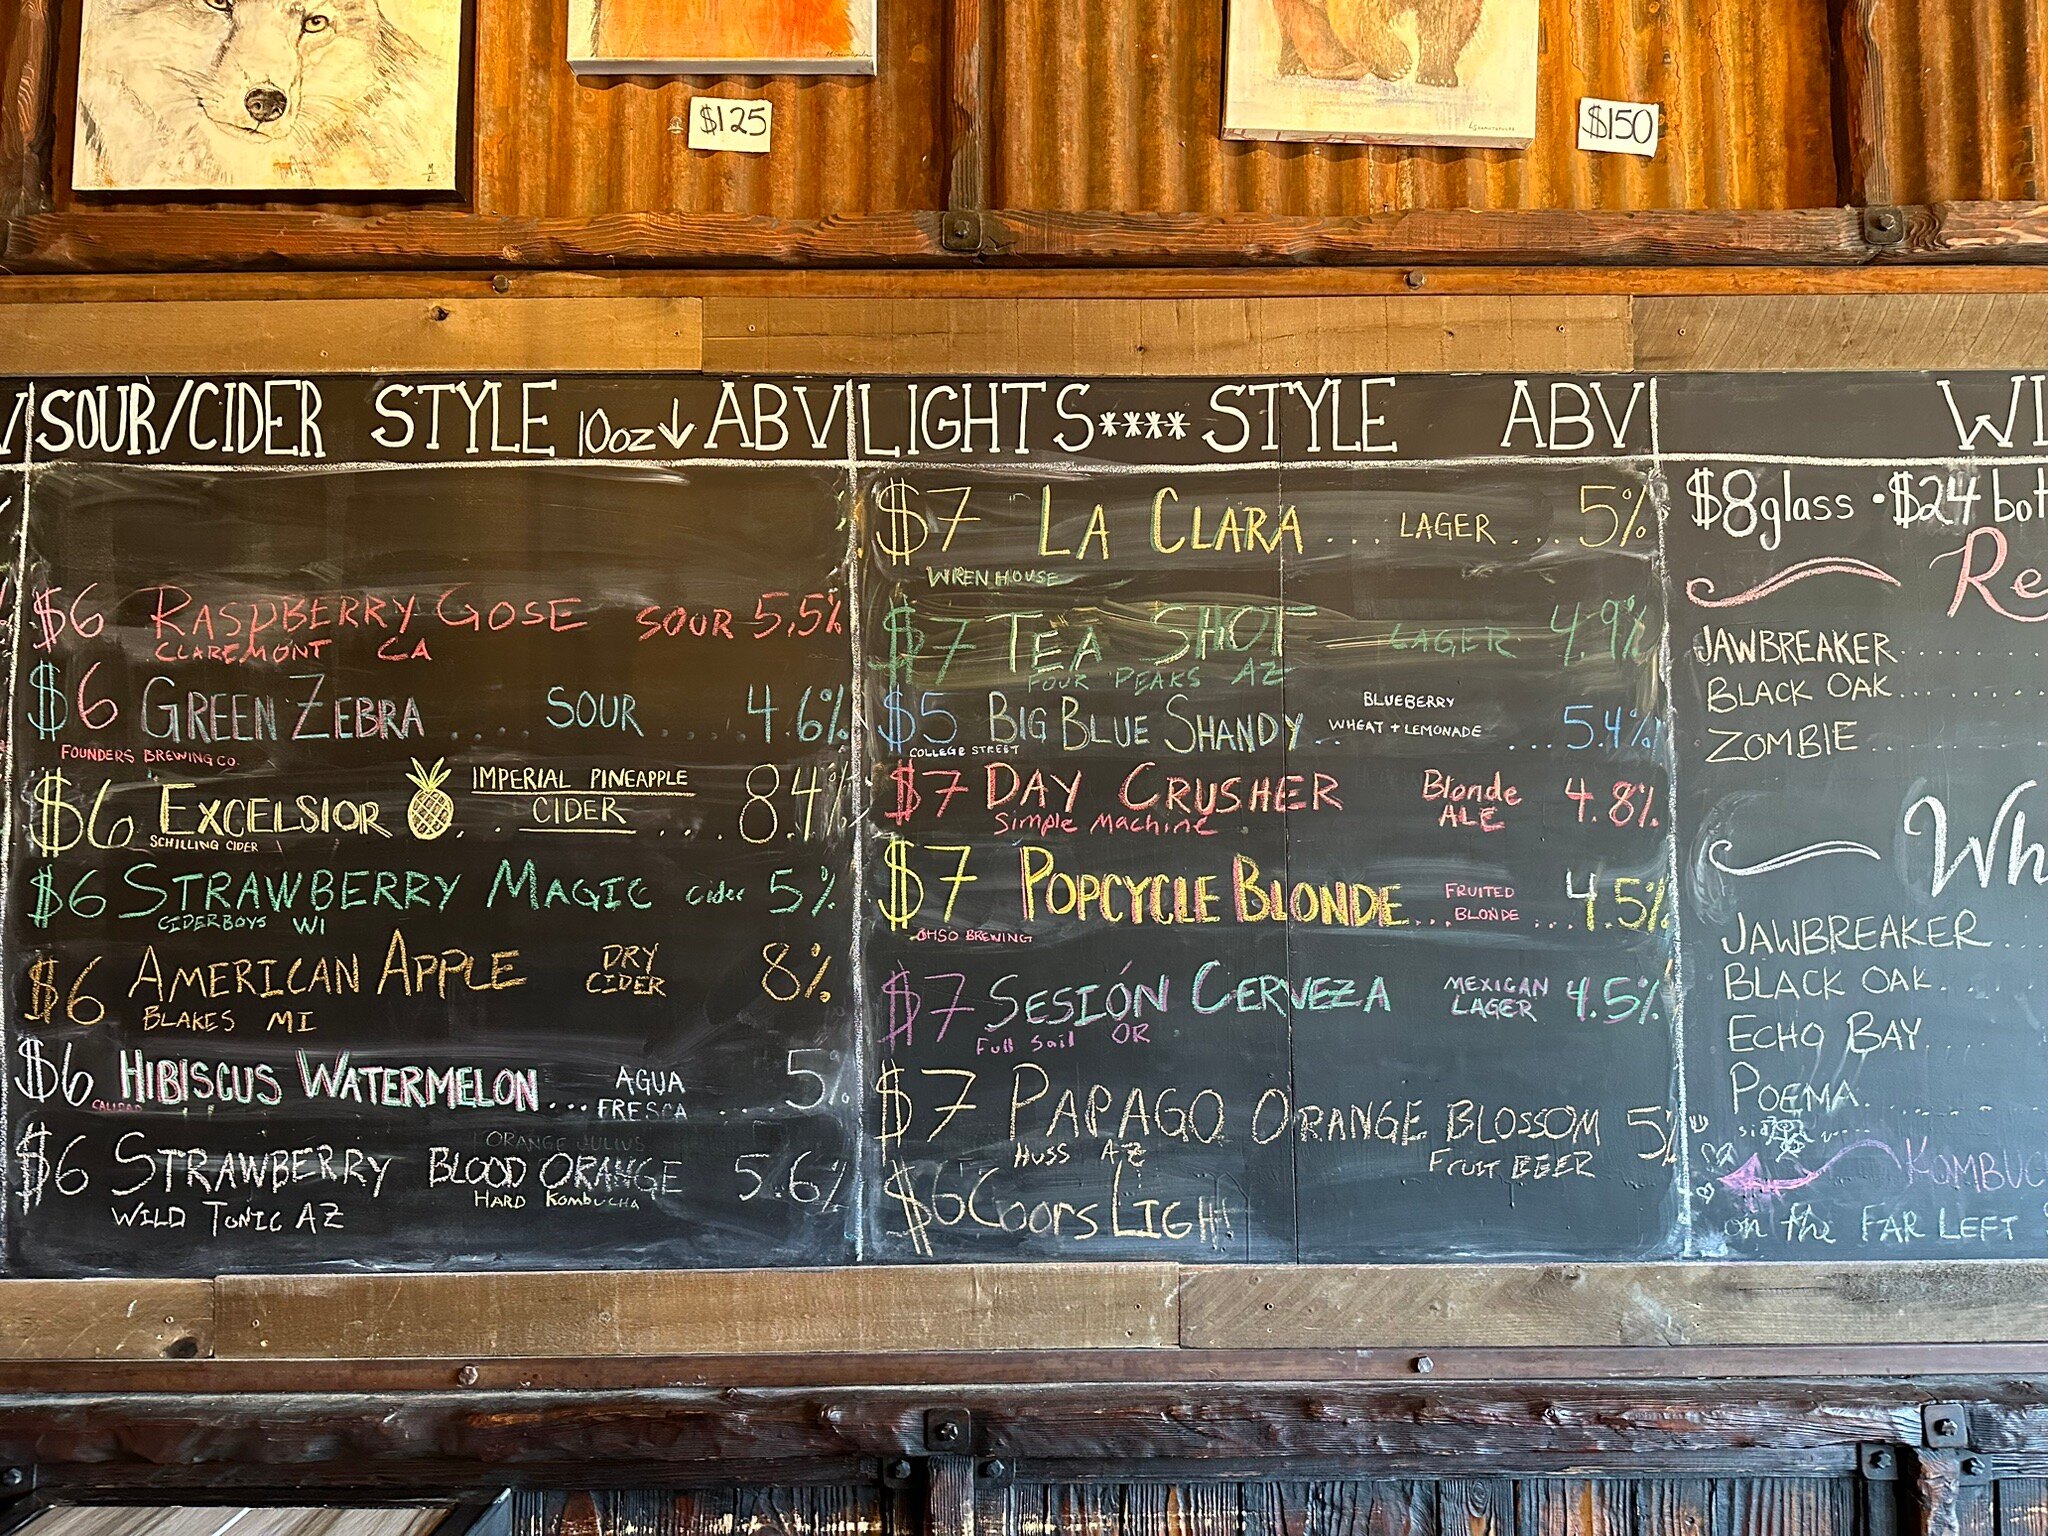 $125
$150
SOUR/CIDER STYLE 10oz ↓ ABV
$6 RASPBERRY GOSE SOUR 5.5%
CLAREMONT CA
$6 GREEN ZEBRA .... SOUR .... 4.6%
FOUNDERS BREWING CO.
$6 EXCELSIOR ... IMPERIAL PINEAPPLE CIDER ... 8.4%
SCHILLING CIDER
$6 STRAWBERRY MAGIC Cider 5%
CIDERBOYS WI
$6 AMERICAN APPLE DRY CIDER 8%
BLAKES MI
$6 HIBISCUS WATERMELON ... AGUA FRESCA .... 5%
CALIDAD
$6 STRAWBERRY BLOOD ORANGE 5.6%
ORANGE JULIUS
HARD KOMBUCHA
WILD TONIC AZ
LIGHTS**** STYLE ABV
$7 LA CLARA ... LAGER ... 5%
WREN HOUSE
$7 TEA SHOT LAGER 4.9%
FOUR PEAKS AZ
$5 BIG BLUE SHANDY .. BLUEBERRY WHEAT + LEMONADE ... 5.4%
COLLEGE STREET
$7 DAY CRUSHER Blonde ALE 4.8%
Simple Machine
$7 POPCYCLE BLONDE ... FRUITED BLONDE ... 4.5%
OHSO BREWING
$7 SESIÓN CERVEZA MEXICAN LAGER 4.5%
Full Sail OR
$7 PAPAGO ORANGE BLOSSOM 5%
HUSS AZ FRUIT BEER
$6 COORS LIGHT
WI
$8 glass • $24 bot
Re
JAWBREAKER
BLACK OAK
ZOMBIE
Wh
JAWBREAKER
BLACK OAK
ECHO BAY
POEMA
KOMBUC
on the FAR LEFT